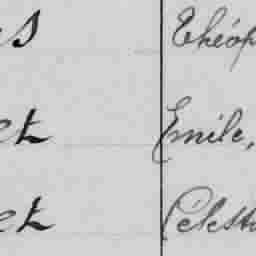 s Théop
et Emile,
et Célest